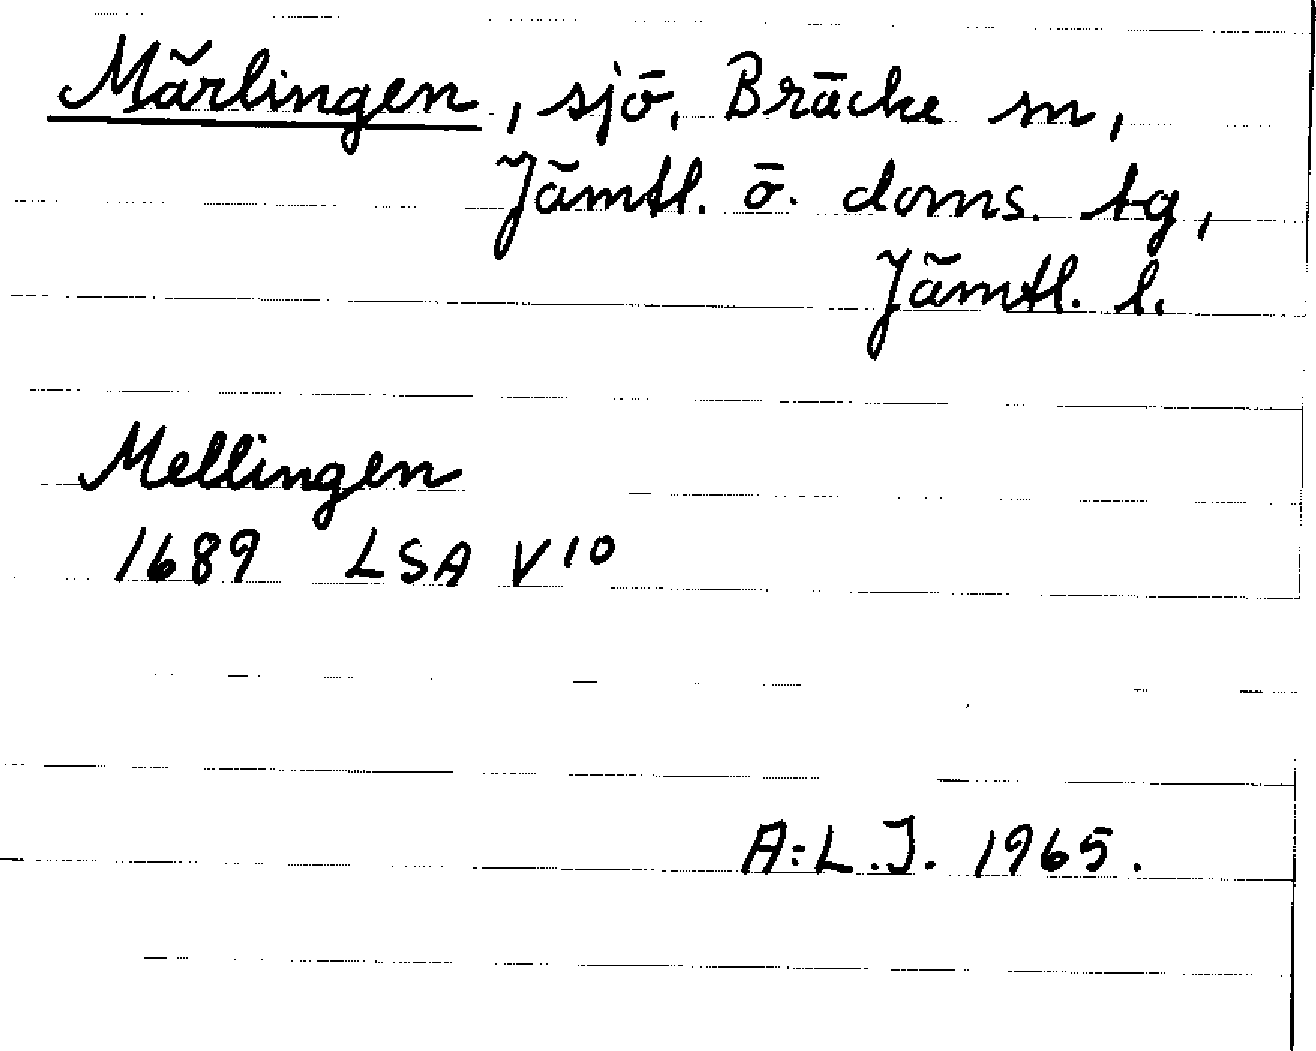 Märlingen, sjö, Bräcke sn,
Jämtl. ö. doms. tg,
Jämtl. l.
Mellingen
1689 LSA V10
A:L.J. 1965.